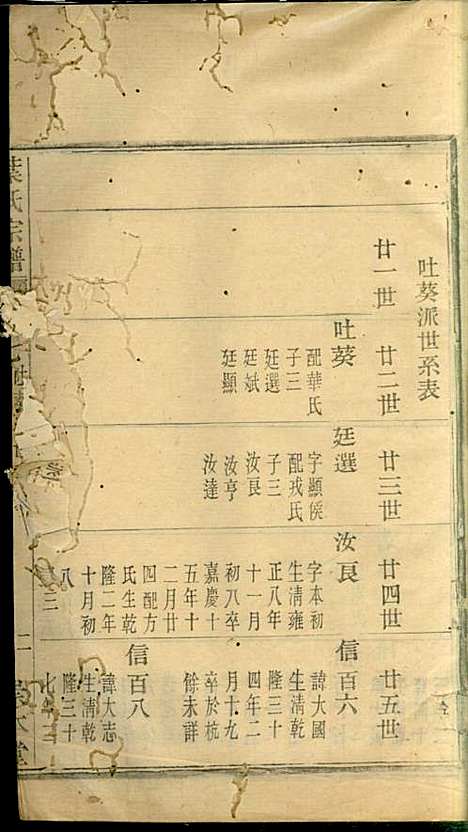 吐葵派世系表
廿一世
廿二世
廿三世
廿四世
廿五世
吐葵
配華氏
子三
廷選
廷斌
廷顯
廷選
字顯侯
配戎氏
子三
汝良
汝亨
汝達
汝良
字本初
生清雍
正八年
十一月
初八卒
嘉慶十
五年十
二月廿
四配方
氏生乾
隆二年
十月初
八
三
信百六
諱大國
生清乾
隆三十
四年二
月十九
卒於杭
餘未詳
信百八
諱大志
生清乾
隆三十
七年
葉氏宗譜